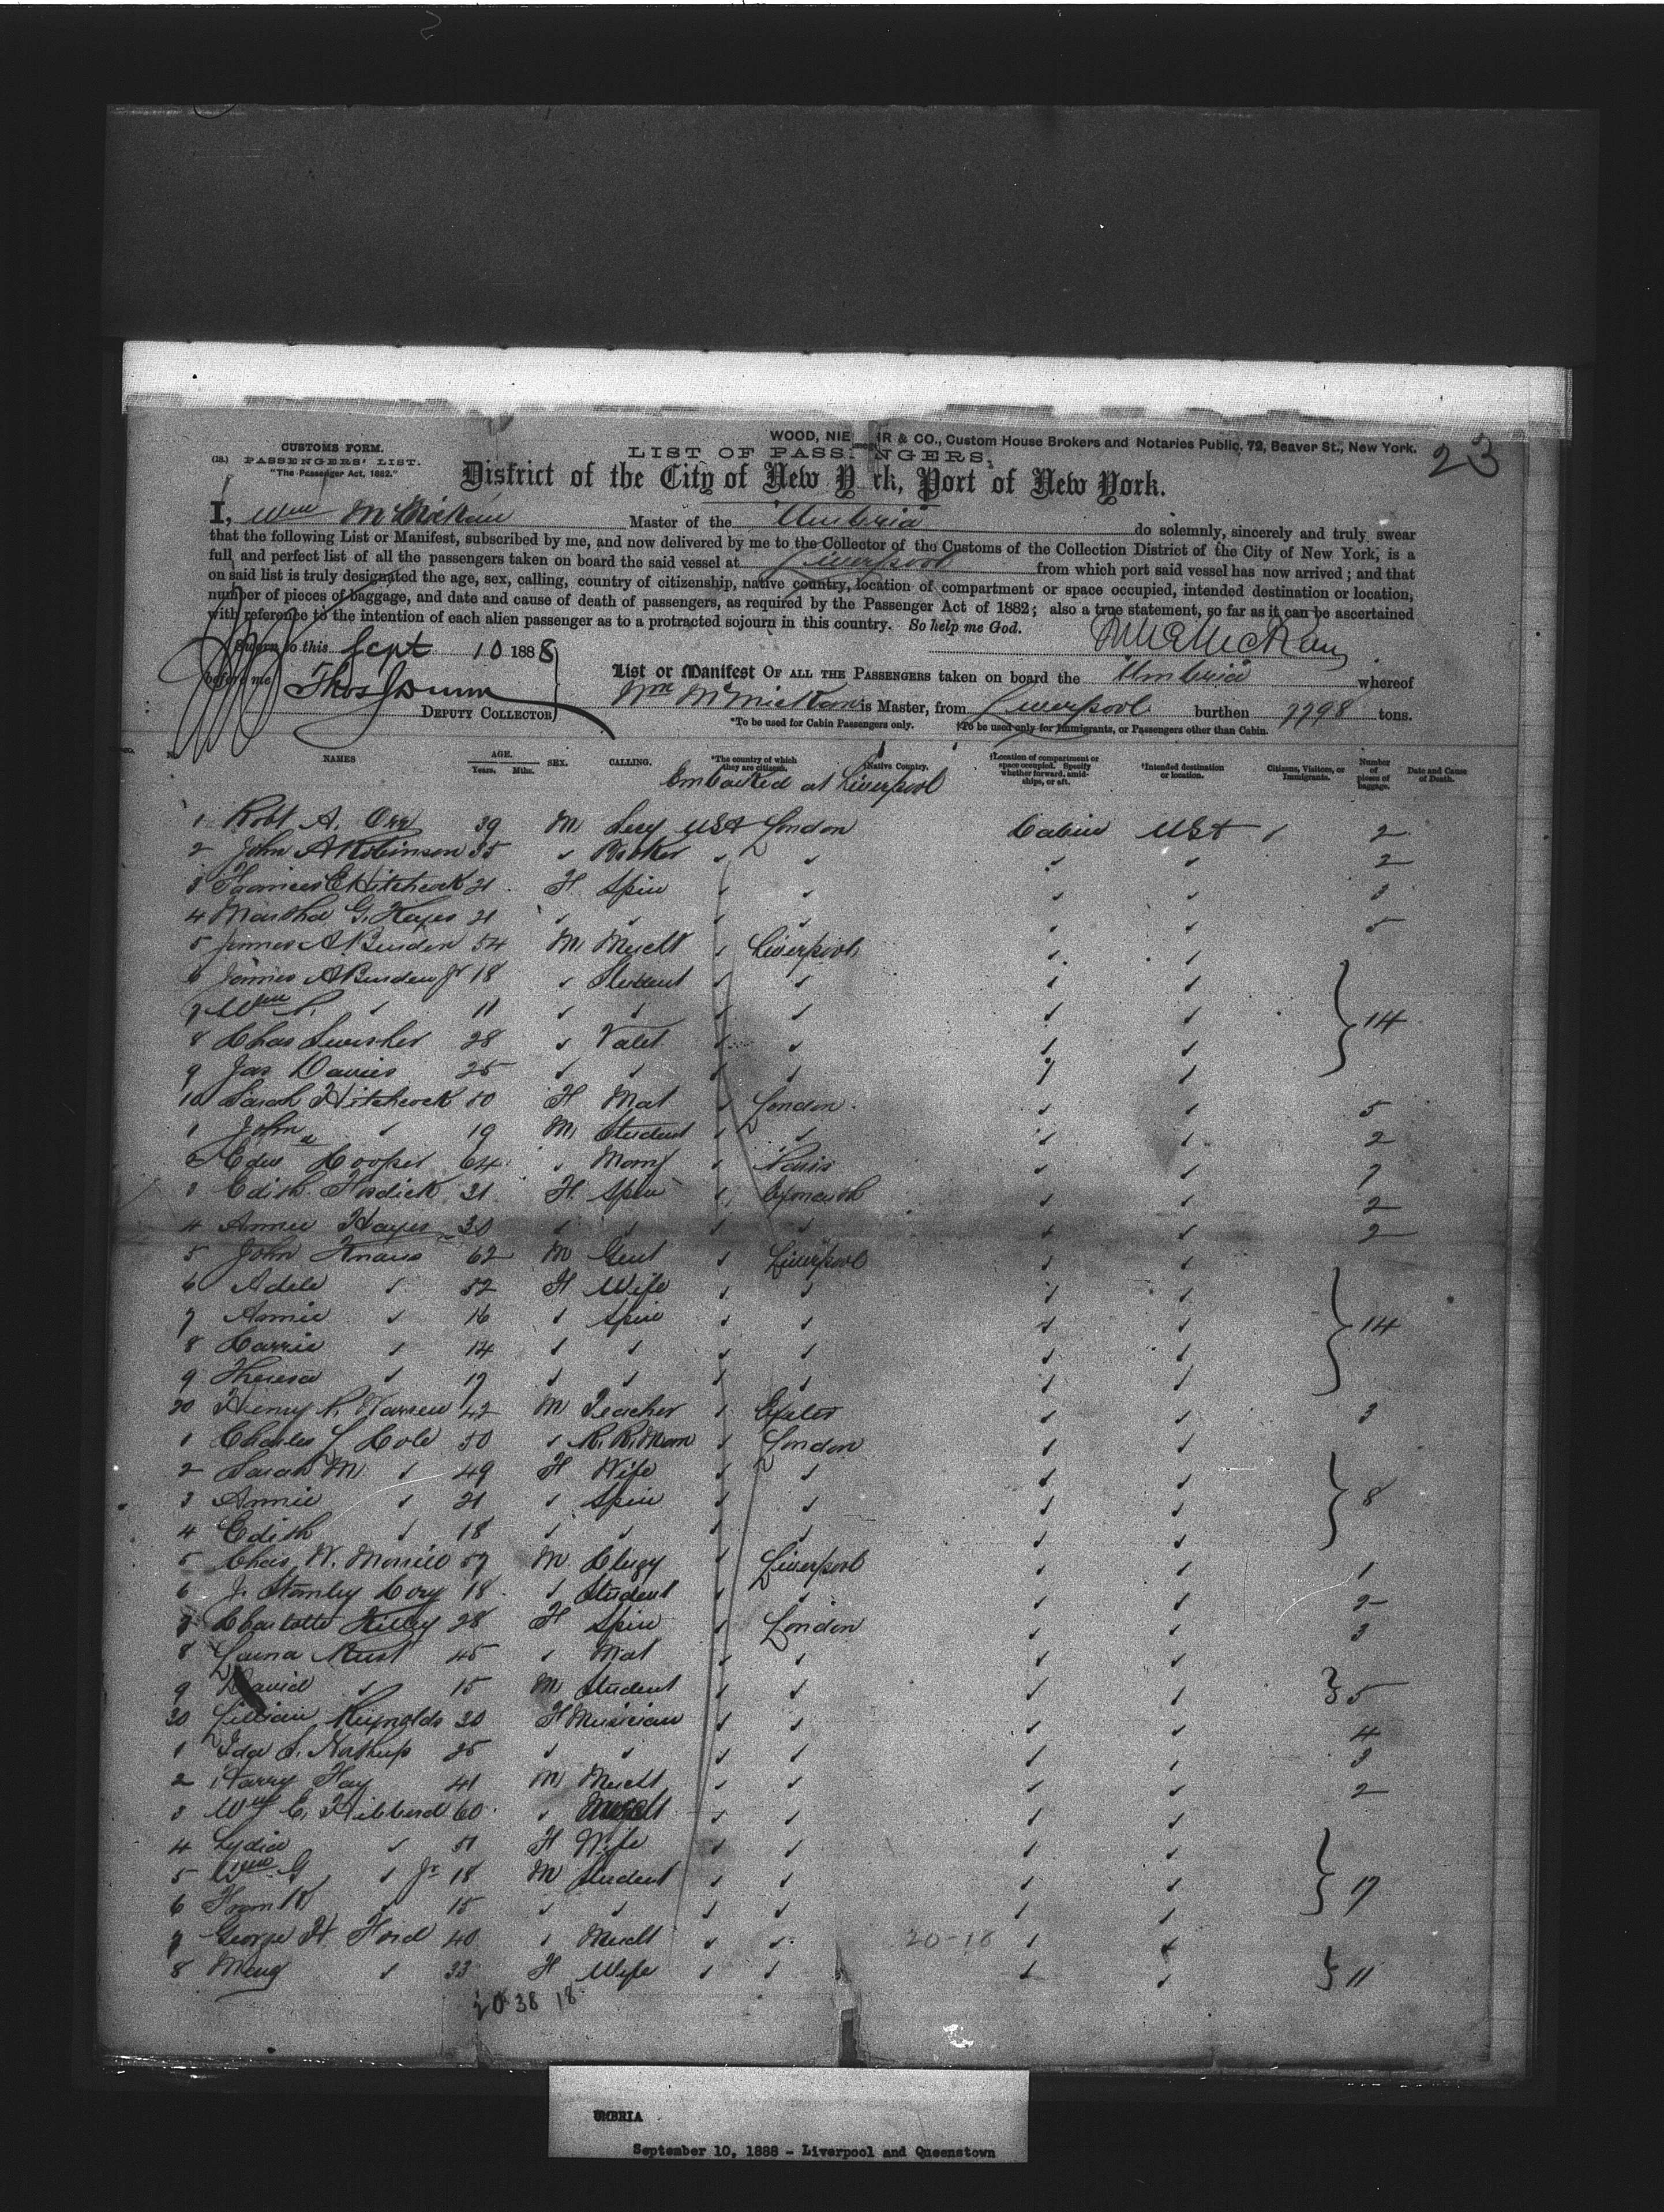 WOOD, NIE IR & CO., Custom House Brokers and Notaries Public, 72, Beaver St., New York.
23
CUSTOMS FORM.
(18.) PASSENGERS' LIST.
"The Passenger Act, 1882."
LIST OF PASS NGERS,
District of the City of New Y rk, Port of New York.
I, Wm McMickan Master of the Umbria do solemnly, sincerely and truly swear
that the following List or Manifest, subscribed by me, and now delivered by me to the Collector of the Customs of the Collection District of the City of New York, is a
full and perfect list of all the passengers taken on board the said vessel at Liverpool from which port said vessel has now arrived; and that
on said list is truly designated the age, sex, calling, country of citizenship, native country, location of compartment or space occupied, intended destination or location,
number of pieces of baggage, and date and cause of death of passengers, as required by the Passenger Act of 1882; also a true statement, so far as it can be ascertained
with reference to the intention of each alien passenger as to a protracted sojourn in this country. So help me God.
Sworn to this Sept 10 1888
before me
DEPUTY COLLECTOR
List or Manifest OF ALL THE PASSENGERS taken on board the Umbria whereof
Wm McMickan is Master, from Liverpool burthen 7798 tons.
*To be used for Cabin Passengers only. †To be used only for Immigrants, or Passengers other than Cabin.
NAMES AGE. Years. Mths. SEX. CALLING. *The country of which they are citizens. †Native Country. †Location of compartment or space occupied. Specify whether forward, amidships, or aft. †Intended destination or location. Citizens, Visitors, or Immigrants. Number of pieces of baggage. Date and Cause of Death.
Embarked at Liverpool
1 Robt A. Orr 39 M Secy USA London Cabin USA 2
2 John A Robinson 35 ✓ Broker ✓ ✓ ✓ ✓ 2
3 Frances E Hitchcock 21 F Spin ✓ ✓ ✓ ✓ 3
4 Martha G. Keyes 21 ✓ ✓ ✓ ✓ ✓ ✓ 5
5 James A. Burden 54 M Mercht ✓ Liverpool ✓ ✓
6 James A Burden Jr 18 ✓ Student ✓ ✓ ✓ ✓
7 Wm P. ✓ 11 ✓ ✓ ✓ ✓ ✓ ✓ } 14
8 Chas Swisher 28 ✓ Valet ✓ ✓ ✓ ✓
9 Jas Davies 25 ✓ ✓ ✓ ✓ ✓ ✓
10 Sarah Hitchcock 50 F Mat ✓ London ✓ ✓ 5
1 John ✓ 19 M Student ✓ ✓ ✓ ✓ 2
2 Edw Cooper 64 ✓ ✓ Paris ✓ ✓ 7
3 Edith Fosdick 21 F Spin ✓ ✓ ✓ 2
4 Annie Hayes 30 ✓ ✓ ✓ ✓ ✓ ✓ 2
5 John 62 M Gent ✓ Liverpool ✓ ✓
6 Adele ✓ 52 F Wife ✓ ✓ ✓ ✓
7 Annie ✓ 16 ✓ Spin ✓ ✓ ✓ ✓ } 14
8 Carrie ✓ 14 ✓ ✓ ✓ ✓ ✓ ✓
9 Theresa ✓ 12 ✓ ✓ ✓ ✓ ✓ ✓
20 Henry P. Warren 42 M Teacher ✓ Exeter ✓ ✓ 3
1 Charles L Cole 50 ✓ R. R. Man ✓ London ✓ ✓
2 Sarah M. ✓ 49 F Wife ✓ ✓ ✓ ✓
3 Annie ✓ 21 ✓ Spin ✓ ✓ ✓ ✓ } 8
4 Edith ✓ 18 ✓ ✓ ✓ ✓ ✓ ✓
5 Chas. W. Morrill 57 M Clergy ✓ Liverpool ✓ ✓ 1
6 J. Stanley Cory 18 ✓ Student ✓ ✓ ✓ ✓ 2
7 Charlotte Hilley 28 F Spin ✓ London ✓ ✓ 3
8 Rust 45 ✓ Mat ✓ ✓ ✓ ✓
9 David ✓ 15 M Student ✓ ✓ ✓ ✓ } 5
30 Lillian Reynolds 30 F Musician ✓ ✓ ✓ ✓ 4
1 Ida S. Northup 25 ✓ ✓ ✓ ✓ ✓ ✓ 3
2 Harry Hay 41 M Mercht ✓ ✓ ✓ ✓ 2
3 Wm G. Hibbard 60 ✓ Mercht ✓ ✓ ✓ ✓
4 Lydia ✓ 51 F Wife ✓ ✓ ✓ ✓
5 Wm G ✓ Jr 18 M Student ✓ ✓ ✓ ✓ } 17
6 Frank ✓ 15 ✓ ✓ ✓ ✓ ✓ ✓
7 George H. Ford 40 ✓ Mercht ✓ ✓ 20-18 ✓ ✓
8 Mary ✓ 33 F Wife ✓ ✓ ✓ ✓ } 11
20 38 18
UMBRIA
September 10, 1888 - Liverpool and Queenstown